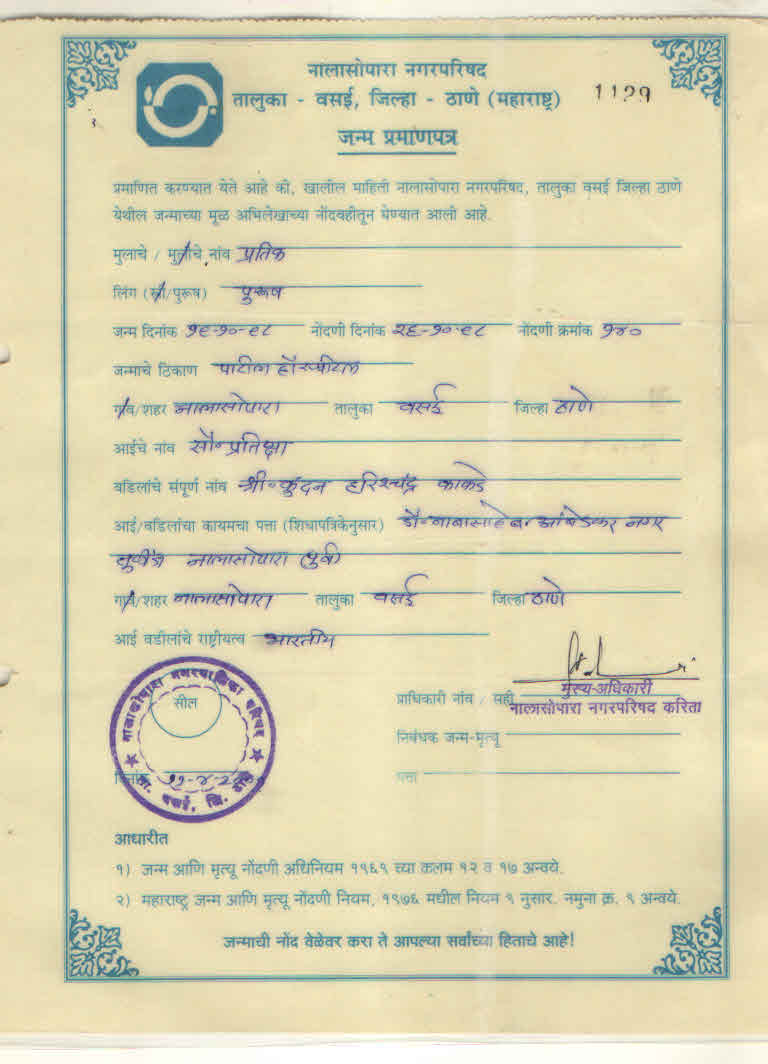 नालासोपारा नगरपरिषद
तालुका - वसई, जिल्हा - ठाणे (महाराष्ट्र)
1129
जन्म प्रमाणपत्र
प्रमाणित करण्यात येते आहे की, खालील माहिती नालासोपारा नगरपरिषद, तालुका वसई जिल्हा ठाणे
येथील जन्माच्या मूळ अभिलेखाच्या नोंदवहीतून घेण्यात आली आहे.
मुलाचे / मुलीचे नांव प्रतिक
लिंग (स्त्री/पुरूष) पुरूष
जन्म दिनांक १९-१०-९८ नोंदणी दिनांक २६-१०-९८ नोंदणी क्रमांक १४०
जन्माचे ठिकाण पाटील हॉस्पीटल
गांव/शहर नालासोपारा तालुका वसई जिल्हा ठाणे
आईचे नांव सौ॰ प्रतिक्षा
वडिलांचे संपूर्ण नांव श्री॰ कुंदन हरिश्चंद्र काकडे
आई/वडिलांचा कायमचा पत्ता (शिधापत्रिकेनुसार) डॉ॰ बाबासाहेब आंबेडकर नगर
नालासोपारा (पुर्व)
गांव/शहर नालासोपारा तालुका वसई जिल्हा ठाणे
आई वडीलांचे राष्ट्रीयत्व भारतीय
प्राधिकारी नांव / सही
मुख्य-अधिकारी
नालासोपारा नगरपरिषद करिता
निबंधक जन्म-मृत्यू
पत्ता
नालासोपारा नगरपालिका परिषद
सील
ता. वसई, जि. ठाणे
दिनांक
आधारीत
१) जन्म आणि मृत्यू नोंदणी अधिनियम १९६९ च्या कलम १२ व १७ अन्वये.
२) महाराष्ट्र जन्म आणि मृत्यू नोंदणी नियम, १९७६ मधील नियम ९ नुसार. नमुना क्र. ९ अन्वये.
जन्माची नोंद वेळेवर करा ते आपल्या सर्वांच्या हिताचे आहे!